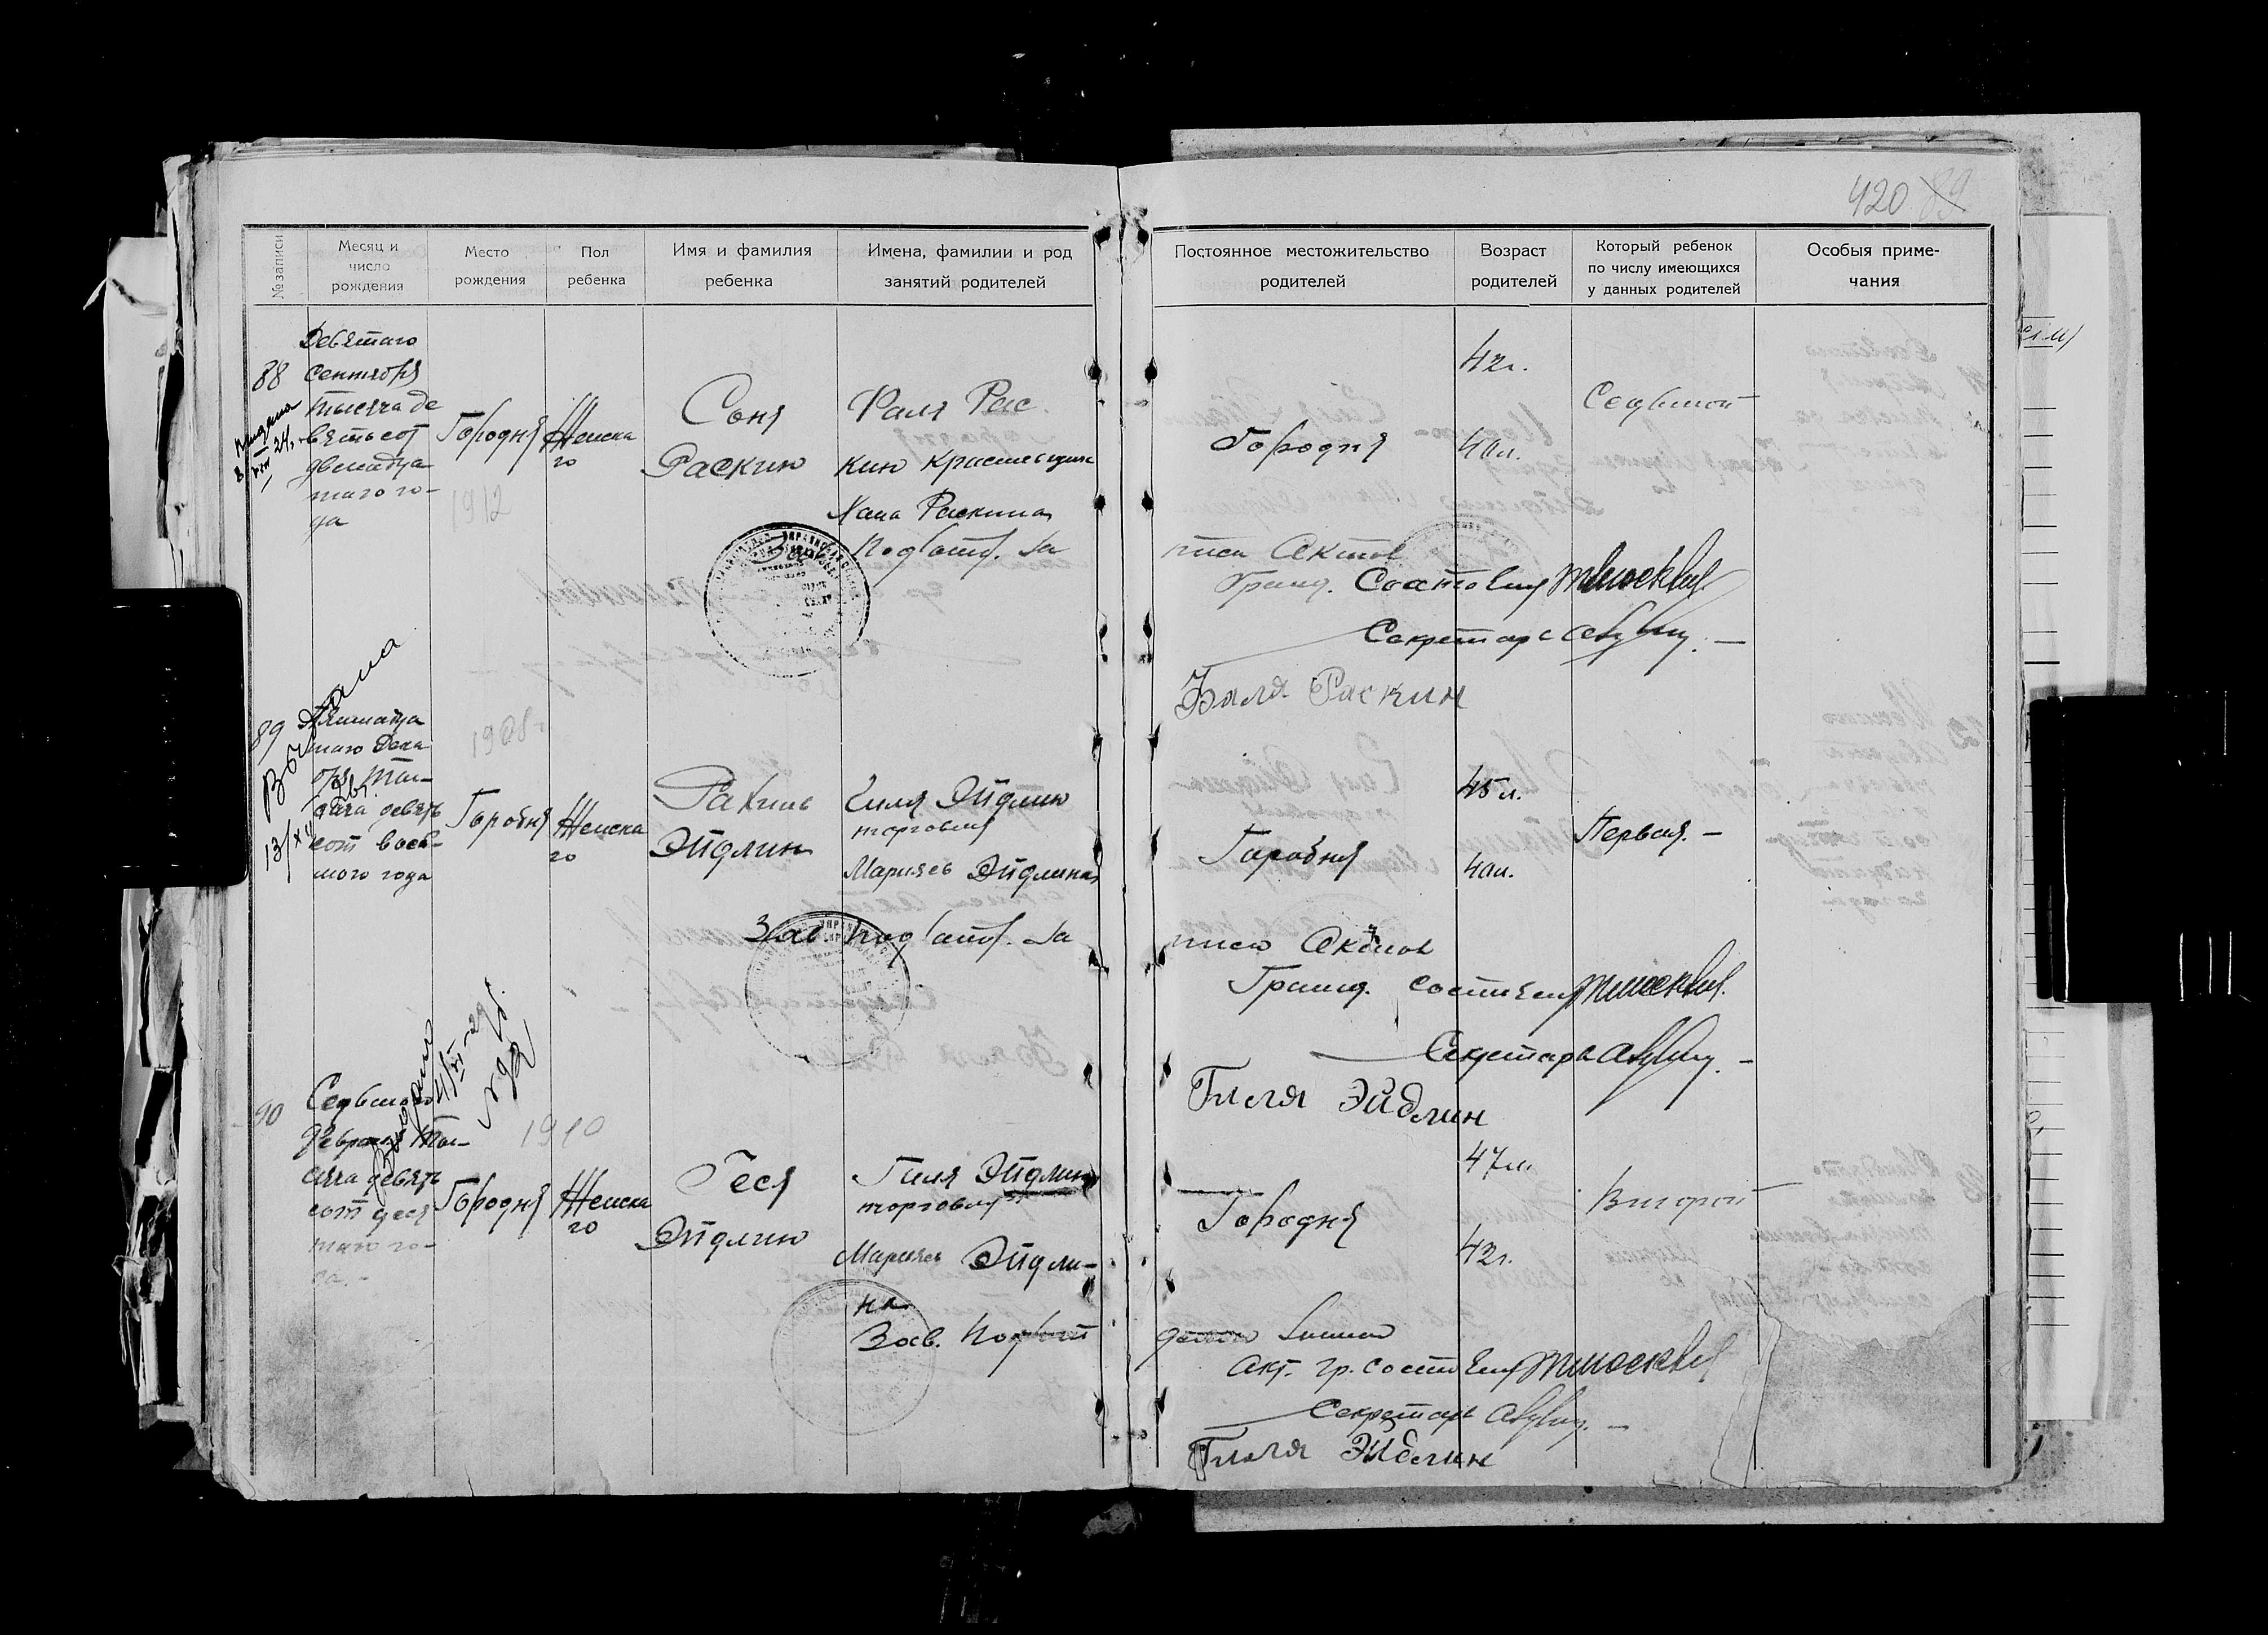 420 89
№ записи
Месяц и
число
рождения
Место
рождения
Пол
ребенка
Имя и фамилия
ребенка
Имена, фамилии и род
занятий родителей
Постоянное местожительство
родителей
Возраст
родителей
Который ребенок
по числу имеющихся
у данных родителей
Особыя приме-
чания
88
Девятаго
Сентября
тысяча де
вятьсот
двенадца
таго го-
да
Городня
1912
Женска
го
Соня
Раскин
Фаля Рас
кин
Хана Раскина
Городня
42 г.
40 л.
Седьмой
Зав Подъотд. За
писи Актов
Гражд. Состояния
Секретарь
Фаля Раскин
89
Выдана
13/X
таго Дека
бря ты-
сяча девять
сот вось-
мого года
1908 г.
Городня
Женска
го
Рахиль
Эйдлин
Гиля Эйдлин
торговля
Марьясь Эйдлина
Городня
45 л.
40 л.
Первая. -
Зав Подъотд. За
писи Актов
Гражд. состояния
Секретарь
Гиля Эйдлин
90
Седьмого
Февраля ты-
сяча девять
сот деся
таго го-
да. -
Выдана
1910
Городня
Женска
го
Геся
Эйдлин
Гиля Эйдлин
торговля
Марьясь Эйдли-
на
Городня
47 л.
42 г.
Второй
Зав. Подъот
делом Записи
Акт. гр. состояния
Секретарь
Гиля Эйдлин